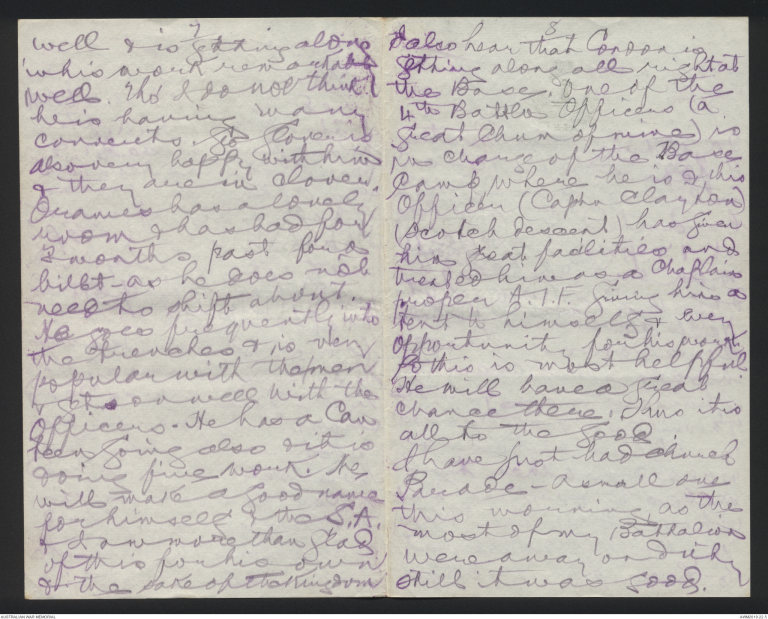 7
well & is getting along
in his work remarkably
well. Tho' I do not think
he is having many
converts. Glover is
also very happy with him
& they are in clover.
Orames has a lovely
room & has had for
2 months past for a
billet - as he does not
need to shift about.
He goes frequently into
the trenches & is very
popular with the men
& gets on well with the
Officers. He has a Can
teen going also & it is
doing fine work. He
will make a good name
for himself & the S.A.
& I am more than glad
of this for his own
& the sake of the Kingdom
8
I also hear that Condon is
getting along all right at
the Base. One of the
4th Battln Officers (a
great Chum of mine) is
in charge of the Base
Camp where he is & this
Officer (Captn Clayton)
(Scotch descent) has given
him great facilities and
treated him as a Chaplain
proper A.I.F. giving him a
tent to himself & every
opportunity for his work.
So this is most helpful.
He will have a great
chance there. Thus it is
all to the good.
I have just had church
Parade - a small one
this morning, as the
most of my Battalion
were away on duty
still it was good.
AUSTRALIAN WAR MEMORIAL